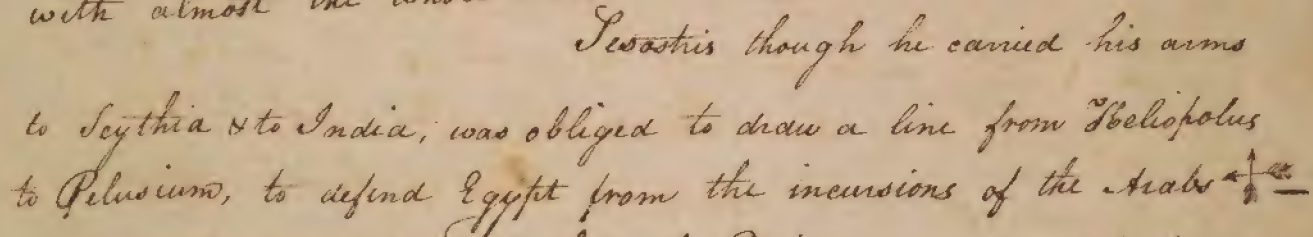 with almost the
Sesostris though he carried his arms
to Scythia & to India, was obliged to draw a line from Heliopolus
to Pelusium, to defend Egypt from the incursions of the Arabs